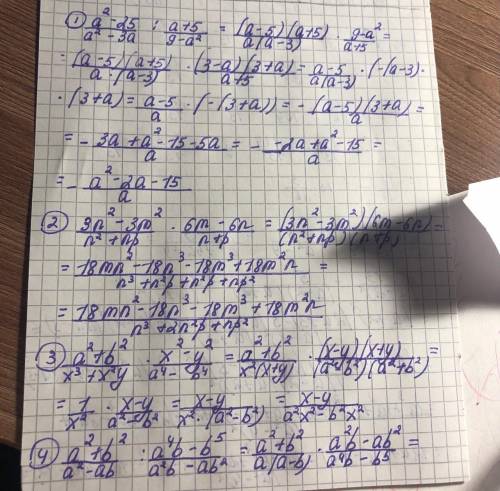 ① (a²-25)/(a²-3a) : (a+5)/(9-a²) = ((a-5)(a+5))/(a(a-3)) · (9-a²)/(a+5) =
= ((a-5)(a+5))/(a·(a-3)) · ((3-a)(3+a))/(a+5) = (a-5)/(a(a-3)) · (-(a-3)·
·(3+a) = (a-5)/a · (-(3+a)) = - ((a-5)(3+a))/a =
= - (3a+a²-15-5a)/a = - (-2a+a²-15)/a =
= - (a²-2a-15)/a
② (3n²-3m²)/(n²+np) · (6m-6n)/(n+p) = ((3n²-3m²)(6m-6n))/((n²+np)(n+p)) =
= (18mn²-18n³-18m³+18m²n)/(n³+n²p+n²p+np²) =
= (18mn²-18n³-18m³+18m²n)/(n³+2n²p+np²)
③ (a²+b²)/(x³+x²y) · (x²-y²)/(a⁴-b⁴) = (a²+b²)/(x²(x+y)) · ((x-y)(x+y))/((a²-b²)(a²+b²)) =
= 1/x² · (x-y)/(a²-b²) = (x-y)/(x²·(a²-b²)) = (x-y)/(a²x²-b²x²)
④ (a²+b²)/(a²-ab) : (a⁴b-b⁵)/(a²b-ab²) = (a²+b²)/(a(a-b)) · (a²b-ab²)/(a⁴b-b⁵) =